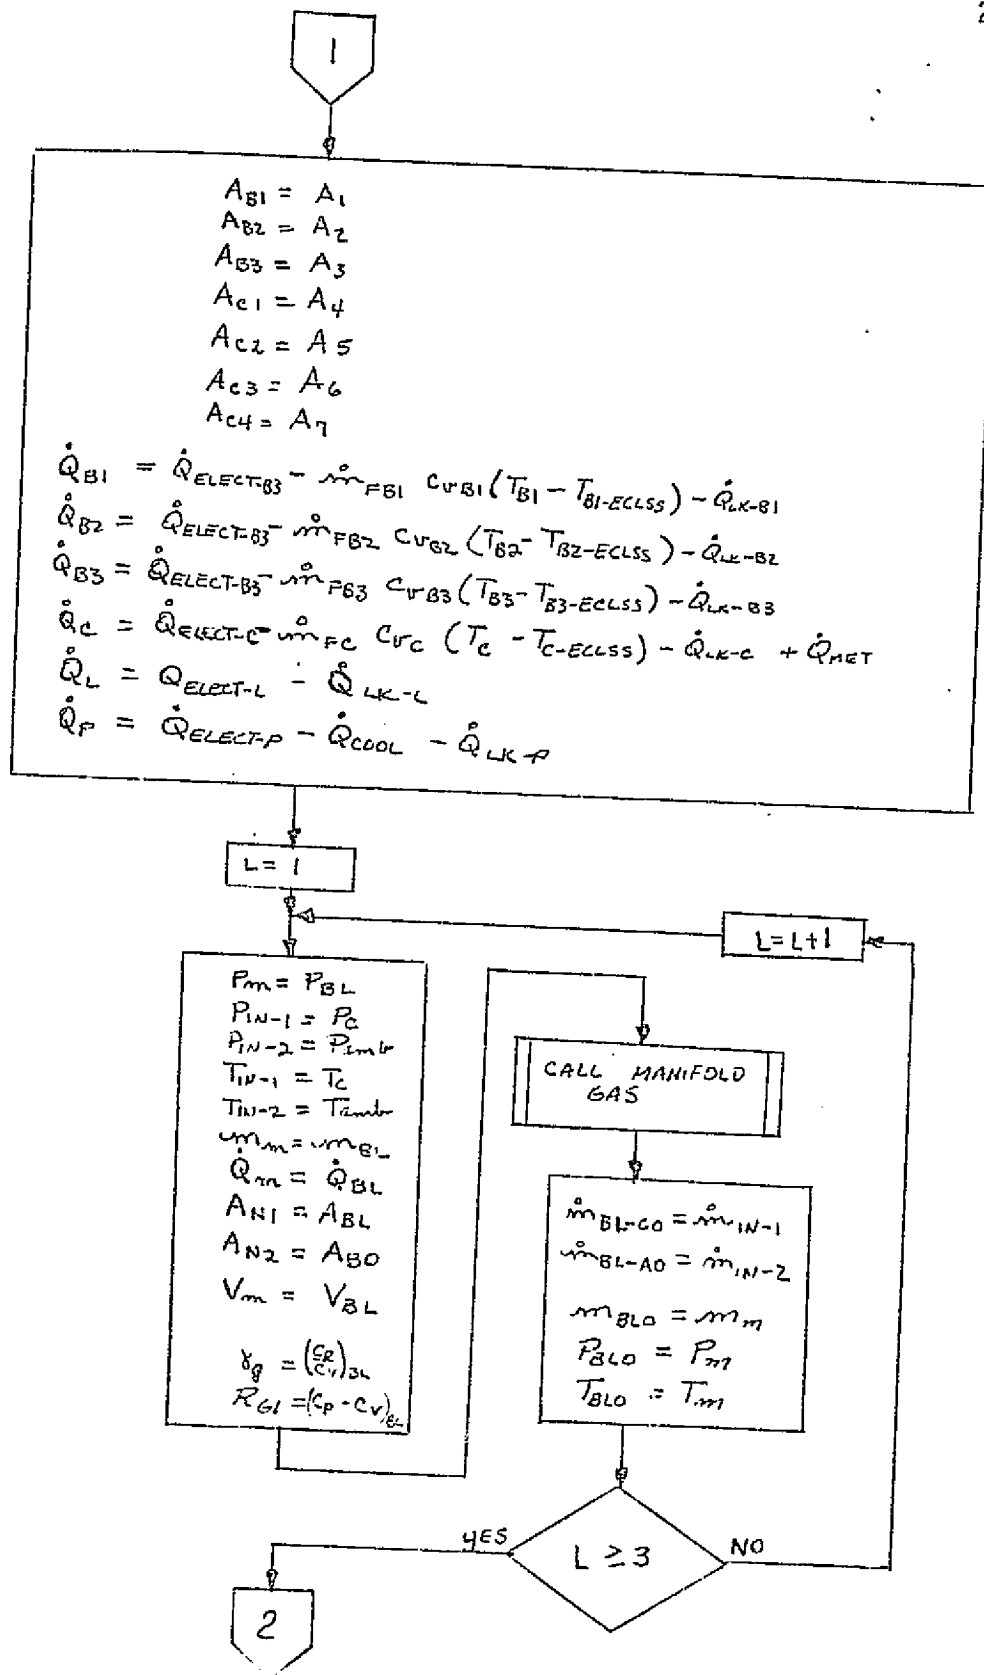 1
A_B1 = A_1
A_B2 = A_2
A_B3 = A_3
A_C1 = A_4
A_C2 = A_5
A_C3 = A_6
A_C4 = A_7
Q̇_B1 = Q̇_ELECT-B3 - ṁ_FB1 C_VB1 (T_B1 - T_B1-ECLSS) - Q̇_LK-B1
Q̇_B2 = Q̇_ELECT-B3 - ṁ_FB2 C_VB2 (T_B2 - T_B2-ECLSS) - Q̇_LK-B2
Q̇_B3 = Q̇_ELECT-B3 - ṁ_FB3 C_VB3 (T_B3 - T_B3-ECLSS) - Q̇_LK-B3
Q̇_C = Q̇_ELECT-C - ṁ_FC C_VC (T_C - T_C-ECLSS) - Q̇_LK-C + Q̇_MET
Q̇_L = Q_ELECT-L - Q̇_LK-L
Q̇_P = Q̇_ELECT-P - Q̇_COOL - Q̇_LK-P
L = 1
L = L+1
P_m = P_BL
P_IN-1 = P_C
P_IN-2 = P_amb
T_IN-1 = T_C
T_IN-2 = T_amb
m_m = m_BL
Q̇_m = Q̇_BL
A_N1 = A_BL
A_N2 = A_BO
V_m = V_BL
γ_g = (C_P/C_V)_BL
R_G1 = (C_P - C_V)_BL
CALL MANIFOLD
GAS
ṁ_BL-CO = ṁ_IN-1
ṁ_BL-AO = ṁ_IN-2
m_BLO = m_m
P_BLO = P_m
T_BLO = T_m
YES
L ≥ 3
NO
2